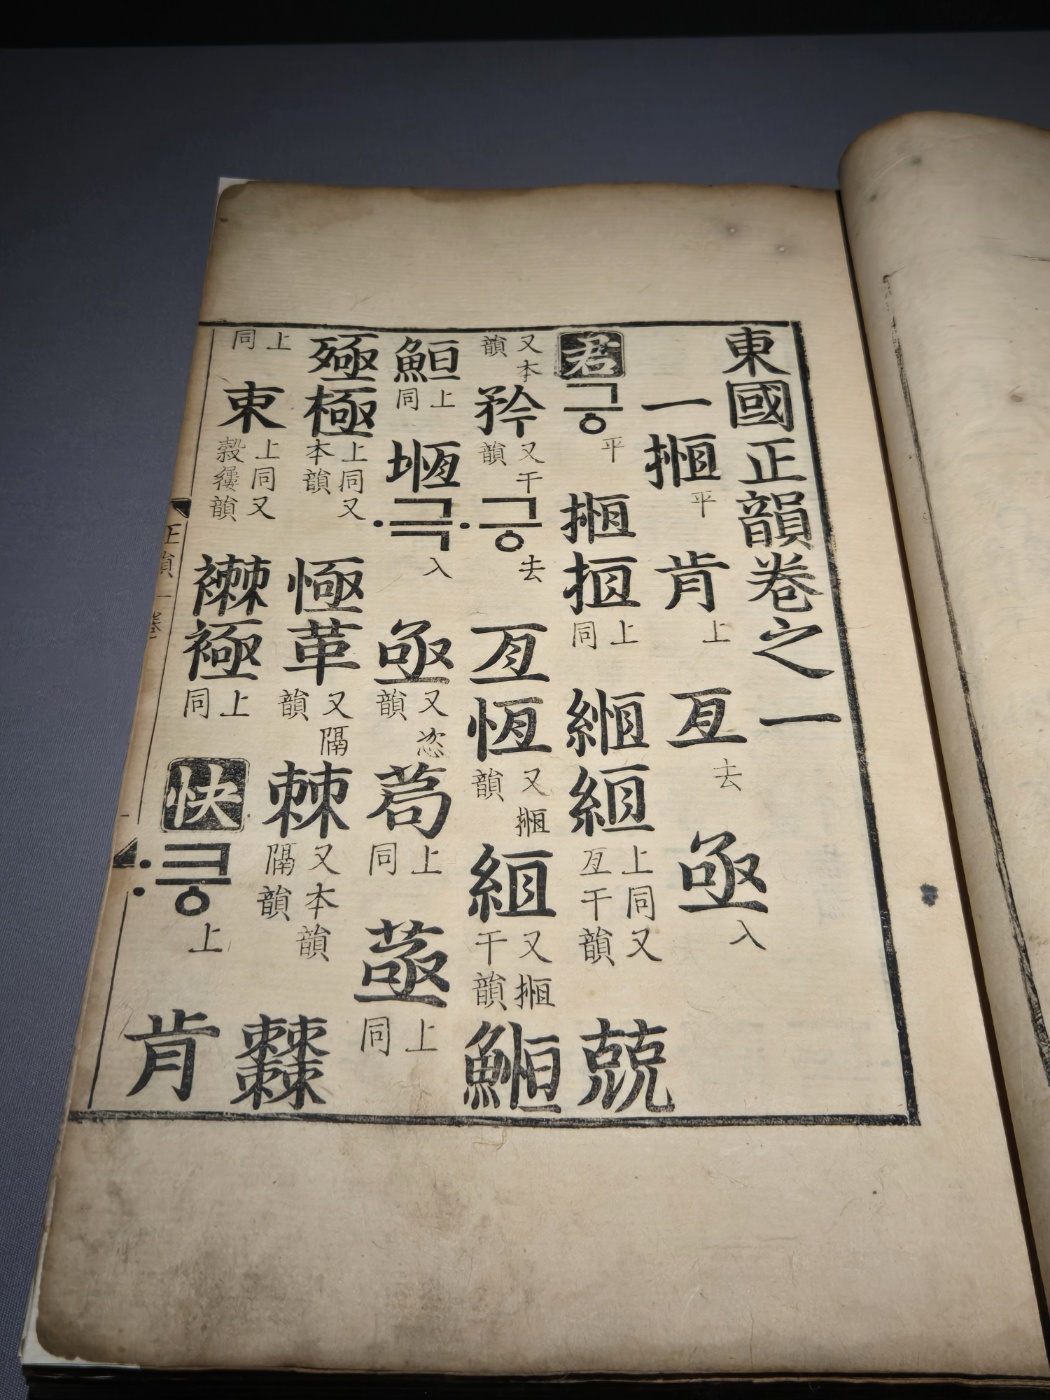 東國正韻卷之一
一搄平 肯上 亙去 亟入
君그ᇰ平 搄揯上同 縆絚上同又亙干韻 兢
又本韻 矜又干韻 그ᇰ〮去 亙恆又搄韻 絚又搄干韻 䱭
䱍上同 堩극〮入 亟又恣韻 茍上同 上同
殛極上同又本韻 㥛革又隔韻 棘又本韻隔韻
上同 朿上同又穀韻 襋上同 快크ᇰ〯上 肯
正韻一卷